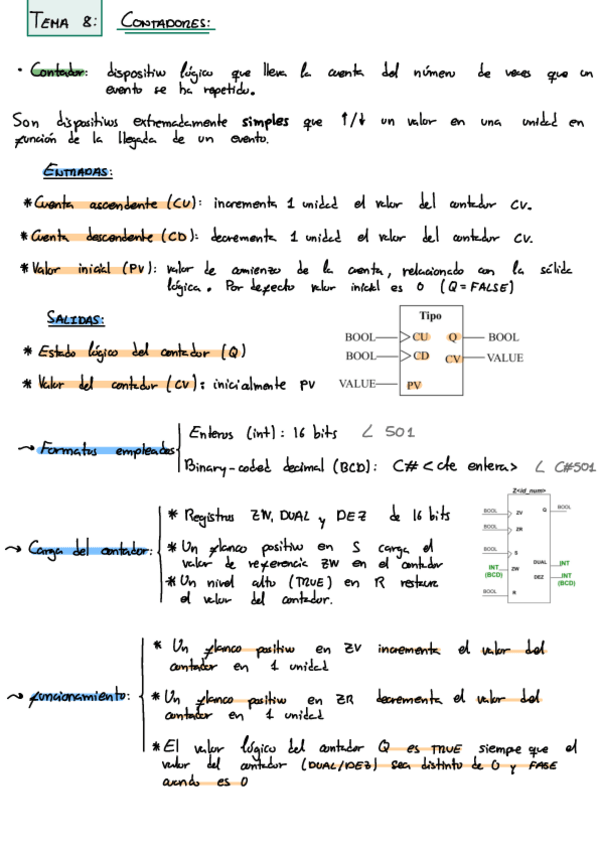 TEMA 8: CONTADORES:
· Contador: dispositivo lógico que lleva la cuenta del número de veces que un
evento se ha repetido.
Son dispositivos extremadamente simples que ↑/↓ un valor en una unidad en
función de la llegada de un evento.
ENTRADAS:
* Cuenta ascendente (CU): incrementa 1 unidad el valor del contador CV.
* Cuenta descendente (CD): decrementa 1 unidad el valor del contador CV.
* Valor inicial (PV): valor de comienzo de la cuenta, relacionado con la salida
lógica. Por defecto valor inicial es 0 (Q=FALSE)
SALIDAS:
* Estado lógico del contador (Q)
* Valor del contador (CV): inicialmente PV
Tipo
BOOL CU Q BOOL
BOOL CD CV VALUE
VALUE PV
→ Formatos empleados
Enteros (int): 16 bits L 501
Binary-coded decimal (BCD): C# <cte entera> L C#501
→ Carga del contador:
* Registros ZW, DUAL y DEZ de 16 bits
* Un flanco positivo en S carga el
valor de referencia ZW en el contador
* Un nivel alto (TRUE) en R restaura
el valor del contador.
Z<id_num>
BOOL ZV Q BOOL
BOOL ZR
BOOL S
INT (BCD) ZW DUAL INT
DEZ INT (BCD)
BOOL R
→ Funcionamiento:
* Un flanco positivo en ZV incrementa el valor del
contador en 1 unidad
* Un flanco positivo en ZR decrementa el valor del
contador en 1 unidad
* El valor lógico del contador Q es TRUE siempre que el
valor del contador (DUAL/DEZ) sea distinto de 0 y FASE
cuando es 0